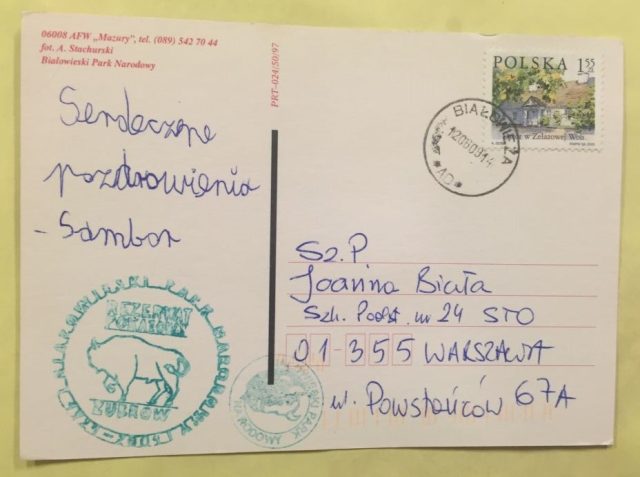 06008 AFW „Mazury", tel. (089) 542 70 44
fot. A. Stachurski
Białowieski Park Narodowy
PRT-024/50/97
Serdeczne
pozdrowienia
- Sambor
POLSKA 1 55 zł
Dwór w Żelazowej Woli
BIAŁOWIEŻA
AD
Sz.P.
Joanna Biała
Szk. Podst. nr 24 STO
01-355 WARSZAWA
ul. Powstańców 67A
BIAŁOWIESKI PARK NARODOWY
REZERWAT
POKAZOWY
ŻUBRÓW
PARK